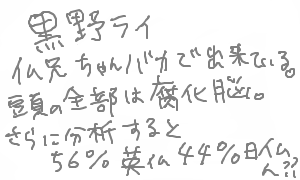 黒野ライ
仏兄ちゃんバカで出来ている。
頭の全部は腐化脳。
さらに分析すると
56% 英仏 44%日仏
ん??